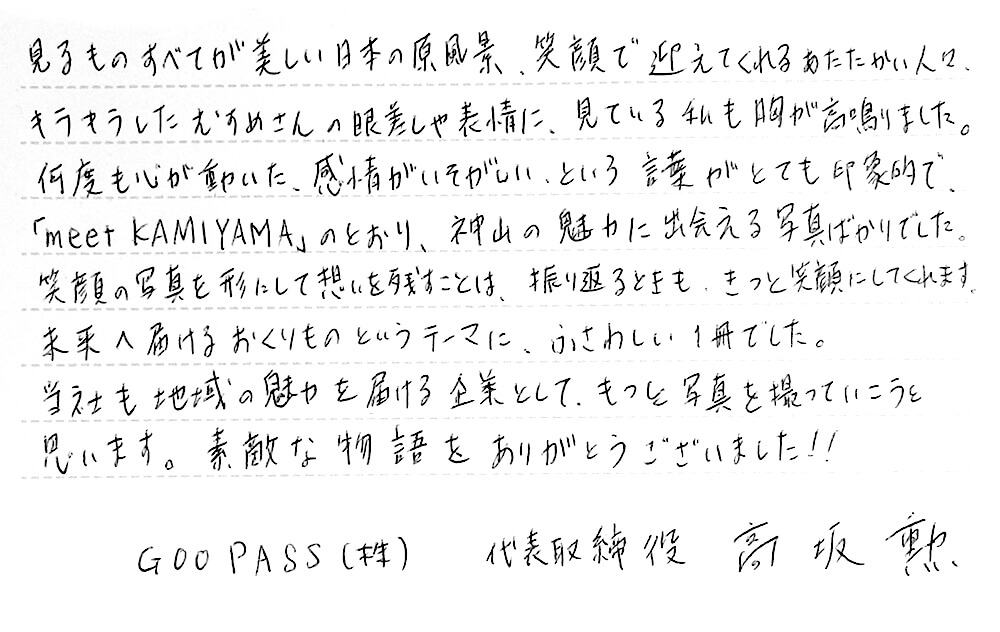 見るものすべてが美しい日本の原風景、笑顔で迎えてくれるあたたかい人々、
キラキラしたむすめさんの眼差しや表情に、見ている私も胸が高鳴りました。
何度も心が動いた、感情がいそがしい、という言葉がとても印象的で、
「meet KAMIYAMA」のとおり、神山の魅力に出会える写真ばかりでした。
笑顔の写真を形にして想いを残すことは、振り返るときも、きっと笑顔にしてくれます。
未来へ届けるおくりものというテーマに、ふさわしい1冊でした。
当社も地域の魅力を届ける企業として、もっと写真を撮っていこうと
思います。素敵な物語をありがとうございました!!
GOOPASS(株) 代表取締役 高坂 勲